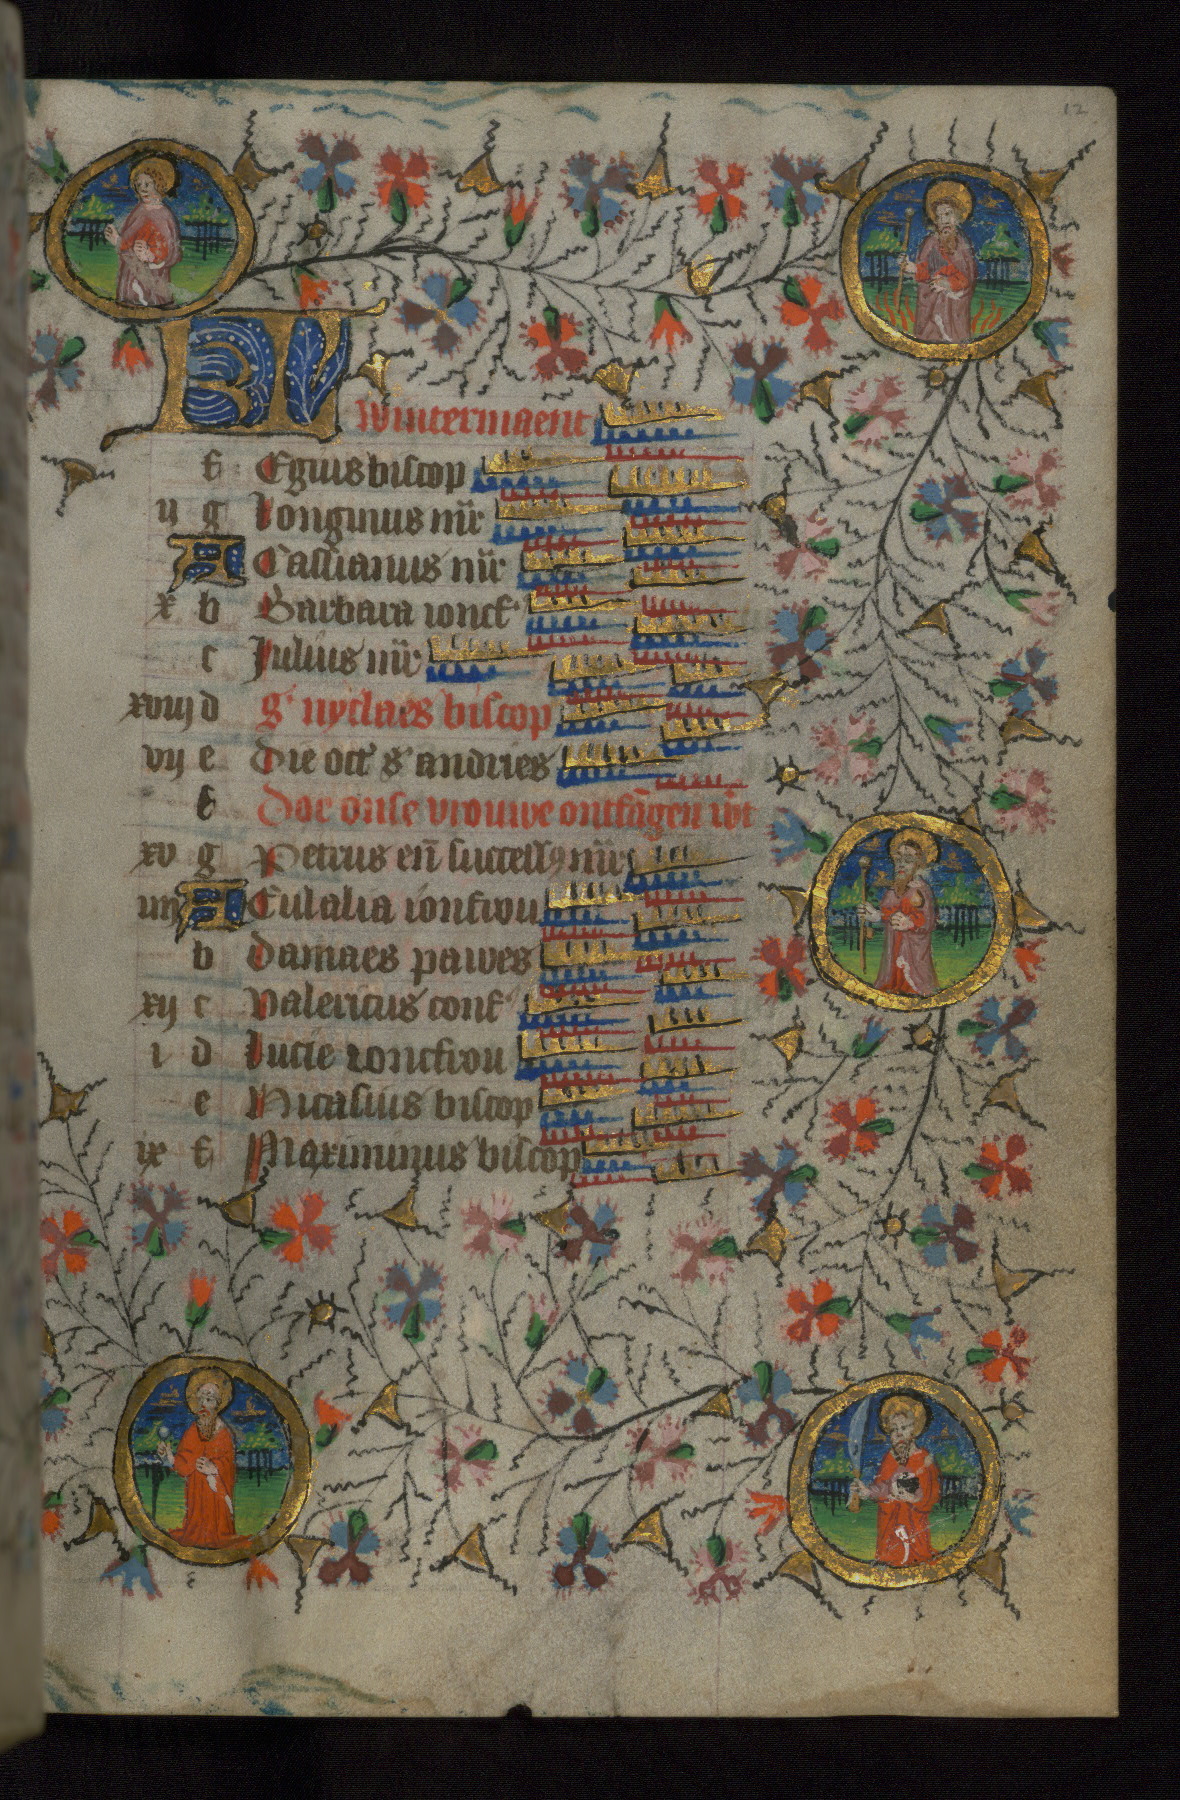 12
KL Wintermaent
f Egius biscop
ij g Longinus mr̄
A Cassianus mr̄
x b Barbara ioncf'
c Julius mr̄
xviij d S' nyclaes biscop
vij e Die oct' s' andries
f Doe onse vrouwe ontfāgen wt
xv g Petrus eñ successꝯ mr̄
iiij A Eulalia ioncfrou
b Damaes pawes
xij c Valericus conf'
i d Lucie ioncfrou
e Nicasius biscop
ix f Maximinus biscop